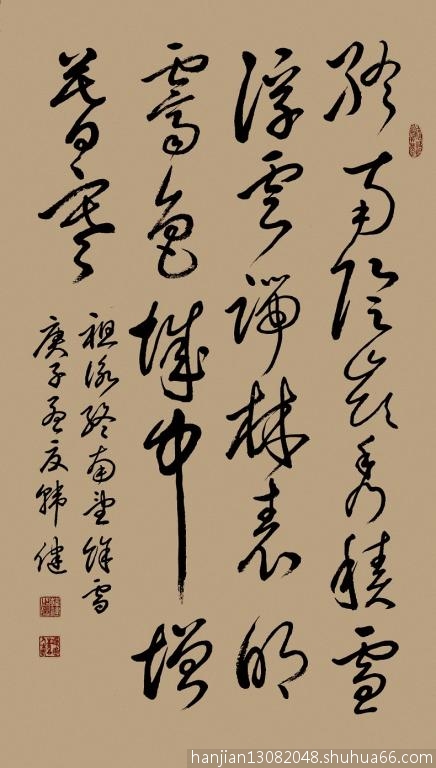 終南陰嶺秀積雪
浮雲端林表明
霽色城中增
暮寒
祖詠終南望餘雪
庚子孟夏韓健
hanjian13082048.shuhua66.com